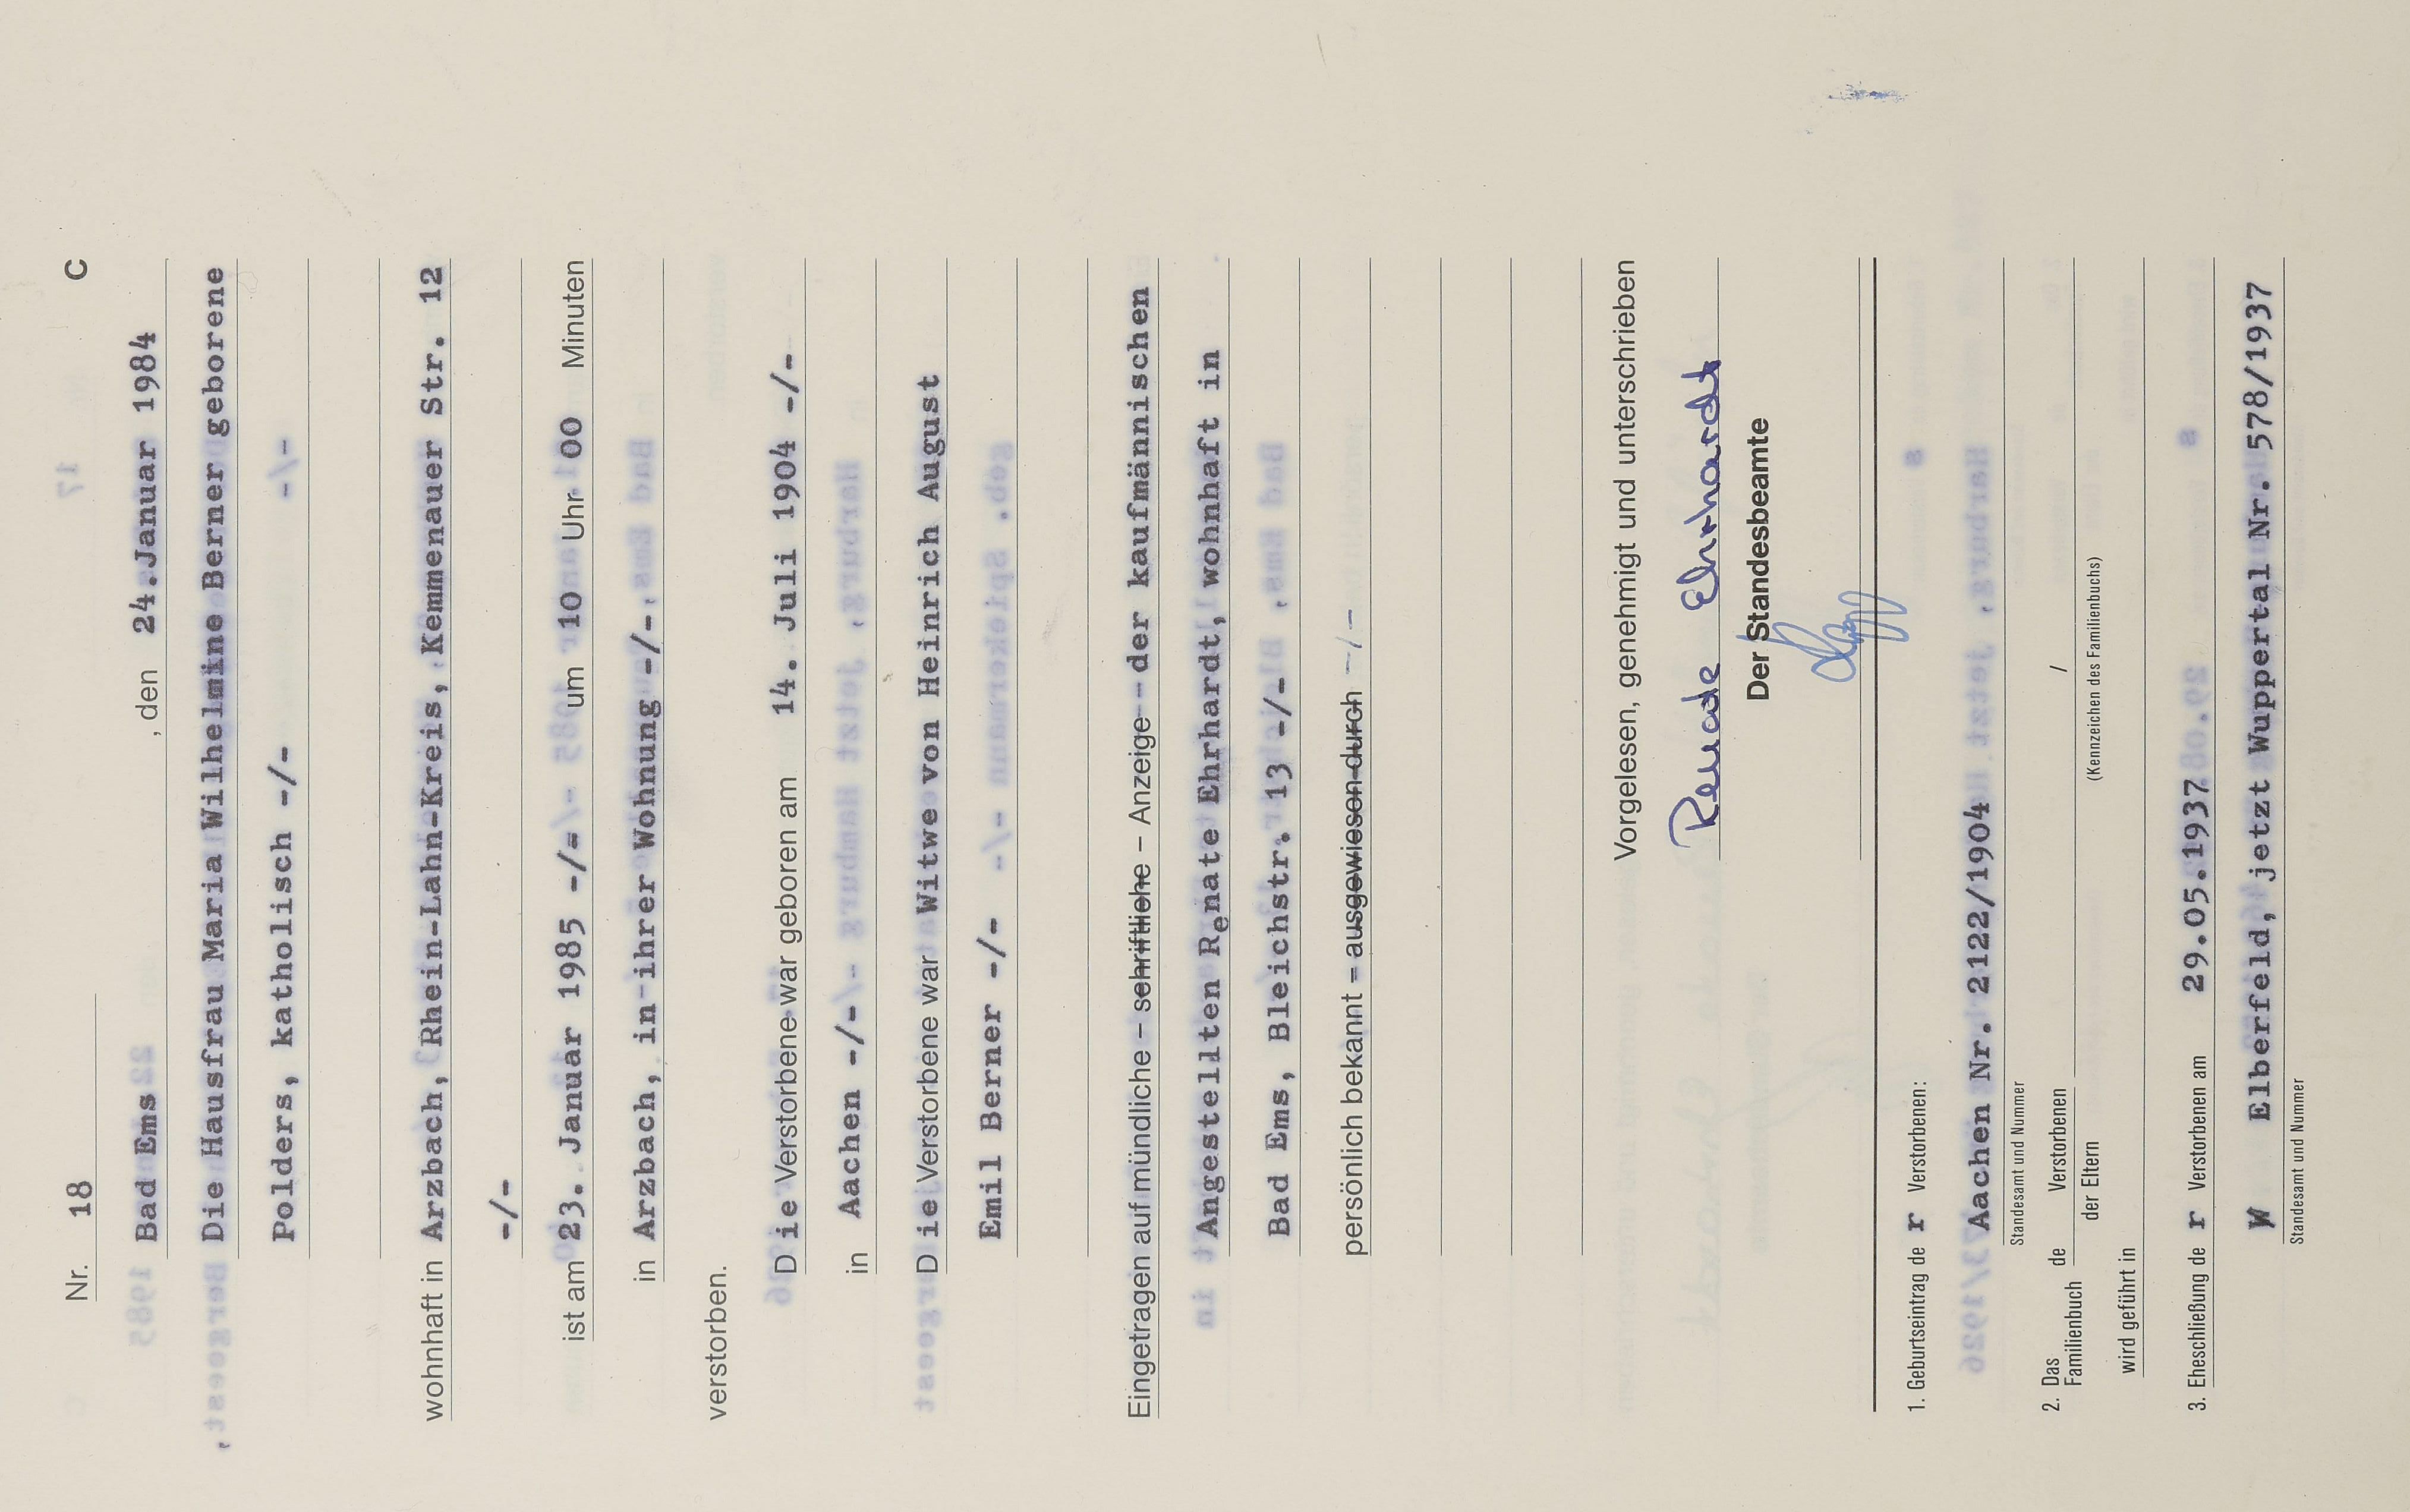 Nr. 18 C
Bad Ems , den 24.Januar 1984
Die Hausfrau Maria Wilhelmine Berner geborene
Polders, katholisch -/-
wohnhaft in Arzbach, Rhein-Lahn-Kreis, Kemmenauer Str. 12
-/-
ist am 23. Januar 1985 -/= um 10 Uhr 00 Minuten
in Arzbach, in ihrer Wohnung -/-
verstorben.
Die Verstorbene war geboren am 14. Juli 1904 -/-
in Aachen -/-
Die Verstorbene war Witwe von Heinrich August
Emil Berner -/-
Eingetragen auf mündliche – schriftliche – Anzeige - der kaufmännischen
Angestellten Renate Ehrhardt, wohnhaft in
Bad Ems, Bleichstr. 13 -/-
persönlich bekannt – ausgewiesen durch -/-
Vorgelesen, genehmigt und unterschrieben
Renate Ehrhardt
Der Standesbeamte
1. Geburtseintrag de r Verstorbenen:
Aachen Nr. 2122/1904
Standesamt und Nummer
2. Das Familienbuch de Verstorbenen /
der Eltern (Kennzeichen des Familienbuchs)
wird geführt in
3. Eheschließung de r Verstorbenen am 29.05.1937
W Elberfeld, jetzt Wuppertal Nr. 578/1937
Standesamt und Nummer